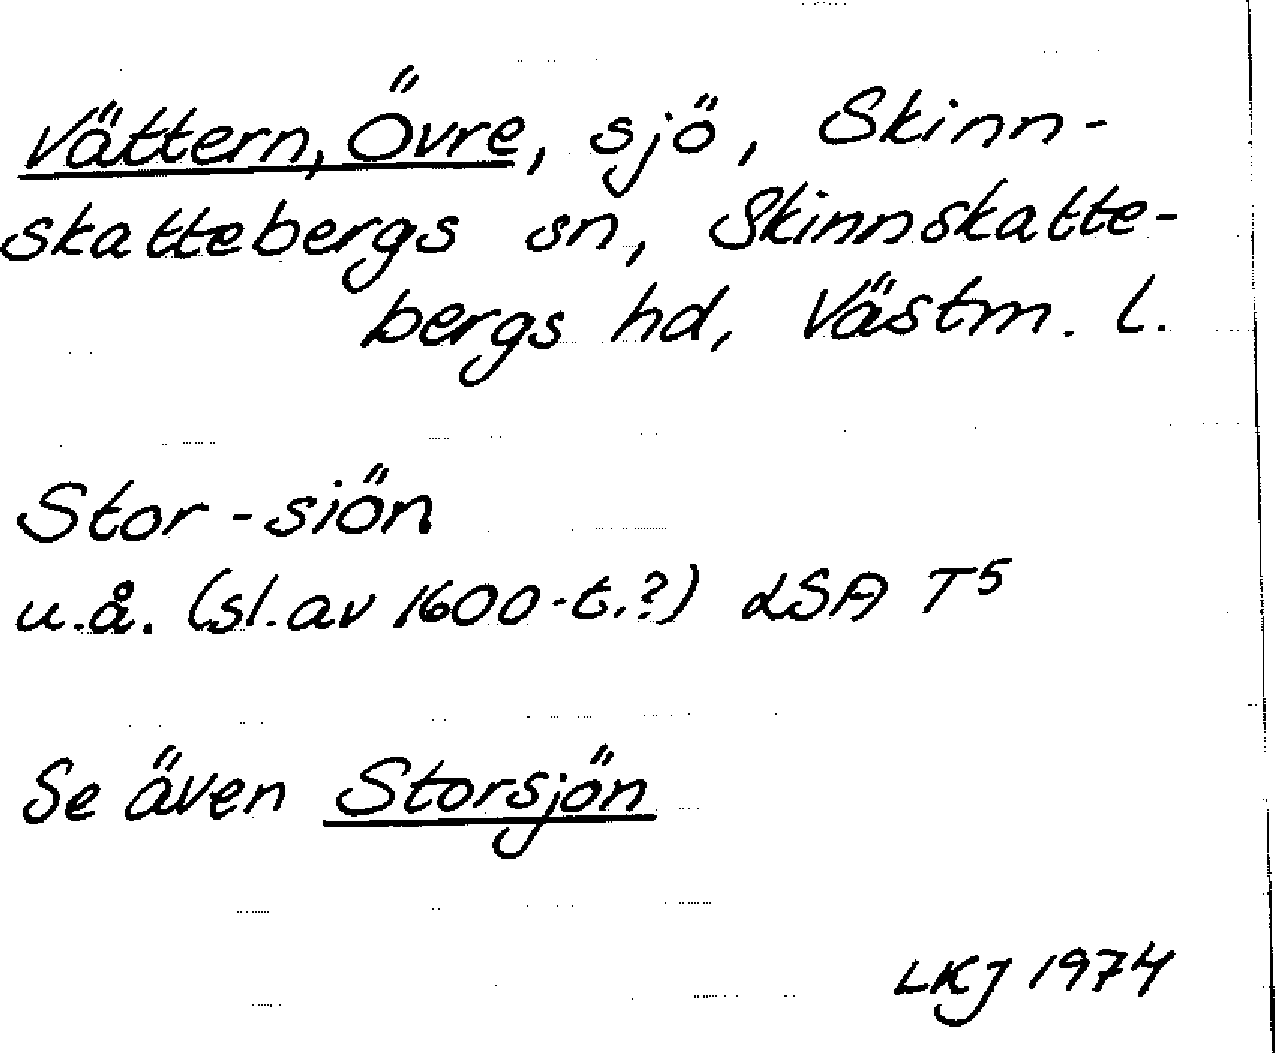 Vättern, Övre, sjö, Skinn-
skattebergs sn, Skinnskatte-
bergs hd, Västm. l.
Stor-siön
u.å. (sl. av 1600-t.?) LSA T5
Se även Storsjön
LKJ 1974